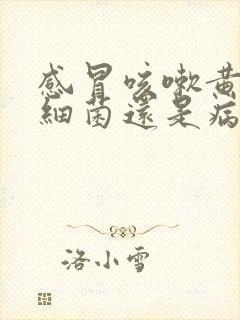 感冒咳嗽黄
細菌還是病
洛小雪